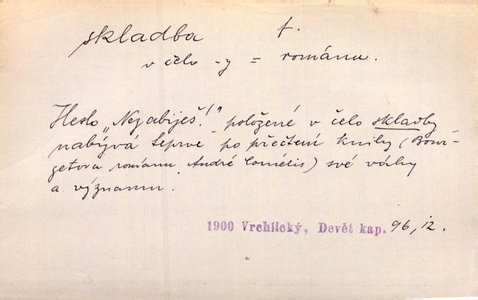 skladba f.
v čelo -y = románu.
Heslo „Nezabiješ!" položené v čelo skladby
nabývá teprve po přečtení knihy (Bour-
getova románu André Cornélis) své váhy
a významu.
1900 Vrchlický, Devět kap. 96, 12.